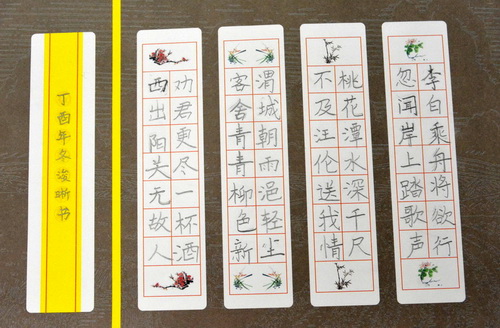 李白乘舟将欲行
忽闻岸上踏歌声
桃花潭水深千尺
不及汪伦送我情
渭城朝雨浥轻尘
客舍青青柳色新
劝君更尽一杯酒
西出阳关无故人
丁酉年冬浚晰书